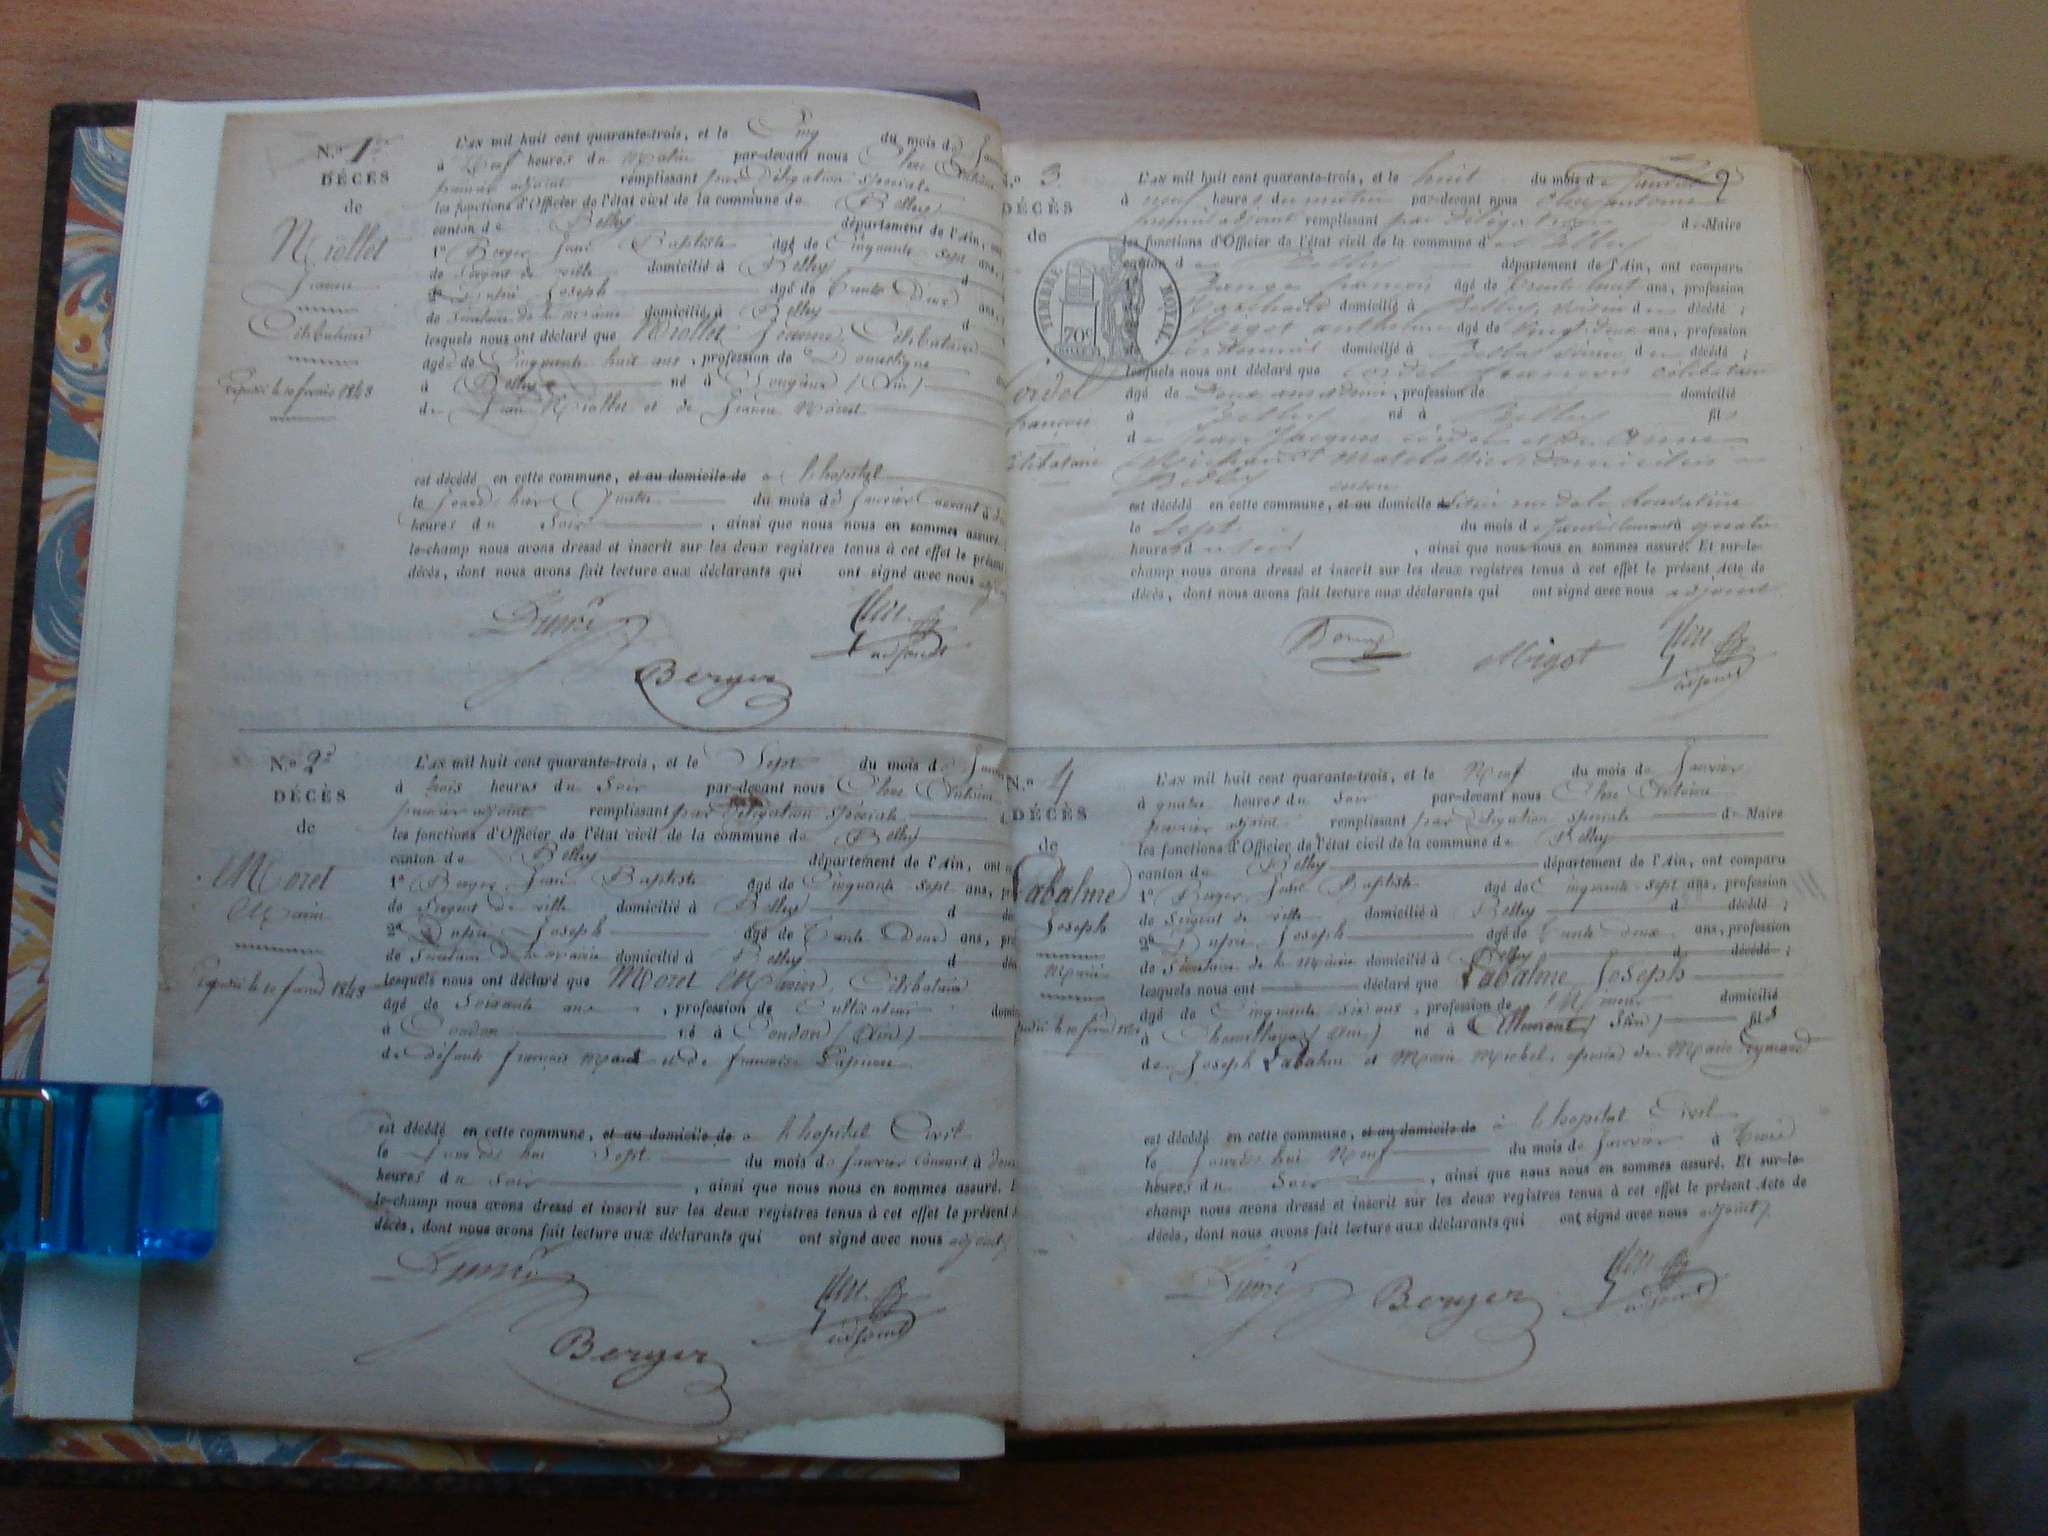 N.º 1
DÉCÈS
de
Miollet
Jeanne
Célibataire
Expédié le 10 février 1843
L'AN mil huit cent quarante-trois, et le Cinq du mois de
à Neuf heures du Matin par-devant nous
premier adjoint remplissant par Délégation Spéciale
les fonctions d'Officier de l'état civil de la commune de Belley
canton de Belley département de l'Ain,
1º Berger Jean Baptiste agé de Cinquante Sept ans,
de Sergent de ville domicilié à Belley d
2º Joseph agé de Trente Deux ans,
de Secrétaire de la Mairie domicilié à Belley d
lesquels nous ont déclaré que Miollet Jeanne, Célibataire
agé de Cinquante huit ans, profession de Domestique
à Belley né à (Ain)
de Jean Miollet et de Jeanne
est décédé en cette commune, et au domicile de à l'hopital
le du mois de Janvier courant à
heures du Soir, ainsi que nous nous en sommes assuré.
le-champ nous avons dressé et inscrit sur les deux registres tenus à cet effet le présent
décès, dont nous avons fait lecture aux déclarants qui ont signé avec nous
adjoint
Berger
N.º 2
DÉCÈS
de
Moret
Marie
Expédié le 10 février 1843
L'AN mil huit cent quarante-trois, et le Sept du mois de
à trois heures du Soir par-devant nous
premier adjoint remplissant par Délégation Spéciale
les fonctions d'Officier de l'état civil de la commune de Belley
canton de Belley département de l'Ain, ont
1º Berger Jean Baptiste agé de Cinquante Sept ans,
de Sergent de ville domicilié à Belley d
2º Joseph agé de Trente Deux ans,
de Secrétaire de la Mairie domicilié à Belley d
lesquels nous ont déclaré que Moret Marie, Célibataire
agé de Soixante ans, profession de
à né à (Ain)
de défunts françois et de françoise
est décédé en cette commune, et au domicile de à l'hopital Civil
le Sept du mois de Janvier courant, à
heures du Soir, ainsi que nous nous en sommes assuré.
le-champ nous avons dressé et inscrit sur les deux registres tenus à cet effet le présent
décès, dont nous avons fait lecture aux déclarants qui ont signé avec nous adjoint
adjoint
Berger
N.º 3
DÉCÈS
de
TIMBRE ROYAL
70c
françois
célibataire
L'AN mil huit cent quarante-trois, et le huit du mois de Janvier
à neuf heures du matin par-devant nous
premier adjoint remplissant par délégation de Maire
les fonctions d'Officier de l'état civil de la commune de Belley
canton de Belley département de l'Ain, ont comparu
françois agé de trente huit ans, profession
domicilié à Belley, voisin du décédé;
agé de vingt deux ans, profession
de domicilié à Belley voisin du décédé;
lesquels nous ont déclaré que françois célibataire
agé de deux ans, profession de domicilié
à Belley né à Belley fils
de Jean Jacques et de Anne
Belley
est décédé en cette commune, et au domicile
le Sept du mois de Janvier courant à quatre
heures du soir, ainsi que nous nous en sommes assuré. Et sur-le-
champ nous avons dressé et inscrit sur les deux registres tenus à cet effet le présent Acte de
décès, dont nous avons fait lecture aux déclarants qui ont signé avec nous adjoint
Migot
adjoint
N.º 4
DÉCÈS
de
Labalme
Joseph
L'AN mil huit cent quarante-trois, et le Neuf du mois de Janvier
à quatre heures du Soir par-devant nous
premier adjoint remplissant par Délégation Spéciale de Maire
les fonctions d'Officier de l'état civil de la commune de Belley
canton de Belley département de l'Ain, ont comparu
1º Berger Jean Baptiste agé de Cinquante Sept ans, profession
de Sergent de ville domicilié à Belley d décédé;
2º Joseph agé de Trente deux ans, profession
de Secrétaire de la Mairie domicilié à Belley d décédé;
lesquels nous ont déclaré que Labalme Joseph
agé de Cinquante Six ans, profession de domicilié
à (Ain) né à (Ain) fils
de Joseph Labalme et Marie Michel, époux de Marie
est décédé en cette commune, et au domicile de à l'hopital Civil
le Neuf du mois de Janvier à
heures du Soir, ainsi que nous nous en sommes assuré. Et sur-le-
champ nous avons dressé et inscrit sur les deux registres tenus à cet effet le présent Acte de
décès, dont nous avons fait lecture aux déclarants qui ont signé avec nous adjoint
Berger
adjoint